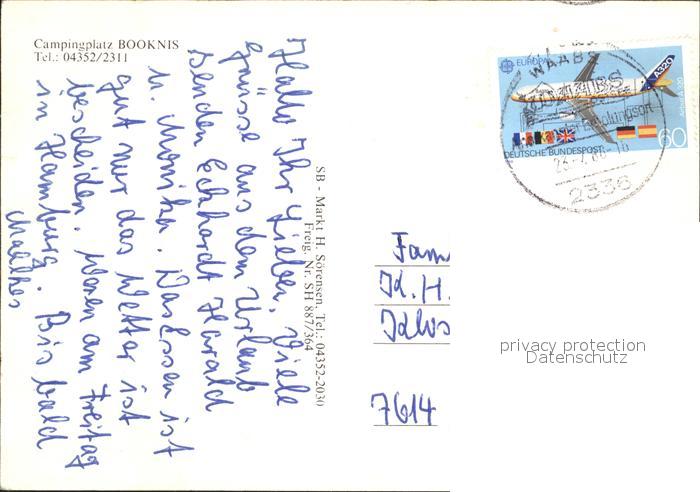 Campingplatz BOOKNIS
Tel.: 04352/2311
Hallo Ihr Lieben, Viele
grüsse aus dem Urlaub
senden Eckhardt Harald
u. Monika. Das Essen ist
gut nur das Wetter ist
bescheiden. Waren am Freitag
in Hamburg. Bis bald
SB - Markt H. Sörensen, Tel.: 04352-2030
Freig. Nr. SH 887/364
EUROPA
A320
Airbus A320
60
DEUTSCHE BUNDESPOST
WAABS
Erholungsort
2336
Fam
K. H.
7614
privacy protection
Datenschutz